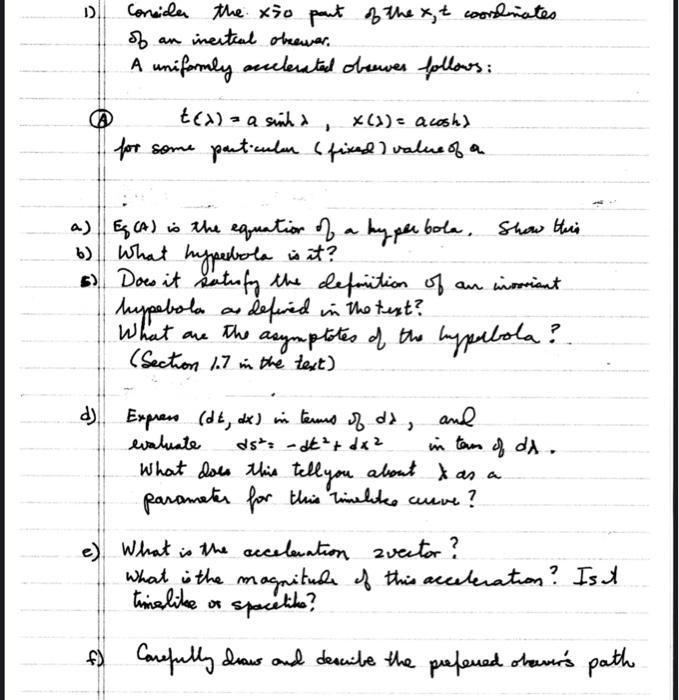 1) Consider the x≥0 part of the x,t coordinates
of an inertial observer.
A uniformly accelerated observer follows:
(A) t(λ) = a sinh λ , x(λ) = a cosh λ
for some particular (fixed) value of a
a) Eq (A) is the equation of a hyperbola. Show this
b) What hyperbola is it?
c) Does it satisfy the definition of an invariant
hypebola as defined in the text?
What are the asymptotes of the hyperbola?
(Section 1.7 in the text)
d) Express (dt, dx) in terms of dλ, and
evaluate ds²= -dt²+dx² in term of dλ.
What does this tell you about λ as a
parameter for this timelike curve?
e) What is the acceleration 2vector?
What is the magnitude of this acceleration? Is it
timelike or spacelike?
f) Carefully draw and describe the preferred observer's path